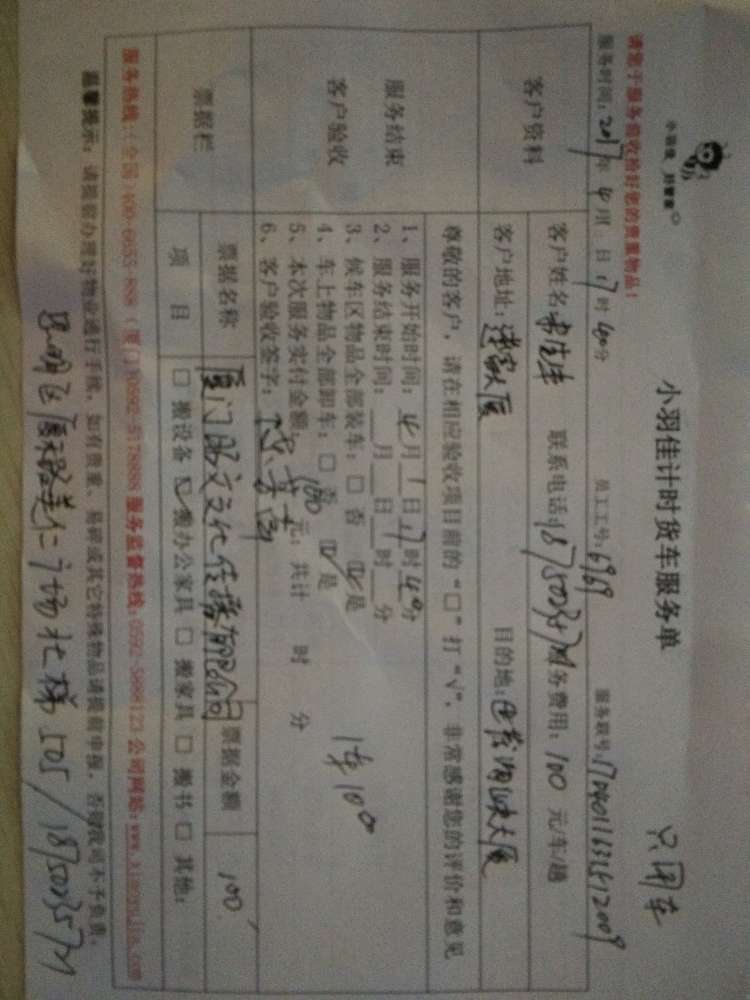 小羽佳 好管家
小羽佳计时货车服务单
只用车
请您于服务前收拾好您的贵重物品!
服务时间:2017年4月1日17时40分 员工工号:6969 服务联号:
客户资料
客户姓名: 先生 联系电话:18750235721 服务费用:100元/车/趟
客户地址: 大厦 目的地: 大厦
服务结束
客户验收
尊敬的客户,请在相应验收项目前的“□”打“√”,非常感谢您的评价和意见
1、服务开始时间:4月1日17时40分
2、服务结束时间:__月__日__时__分
3、候车区物品全部装车:□ 否 ☑ 是
4、车上物品全部卸车:□ 否 ☑ 是
5、本次服务实付金额:100元;共计 时 分
1车100
6、客户验收签字:
票据栏
票据名称 厦门 文文化传播有限公司 票据金额 100
项 目 □ 搬设备 ☑ 搬办公家具 □ 搬家具 □ 搬书 □ 其他:
服务热线:(全国)400-6655-888 (厦门)0592-5178888 服务监督热线:0592-5888123 公司网站:www.xiaoyujia.com
温馨提示:请提前办理好物业通行手续,如有贵重、易碎或其它特殊物品请提前申报,否则我司不予负责。
思明区厦禾路美仁 场 梯505/18750235721